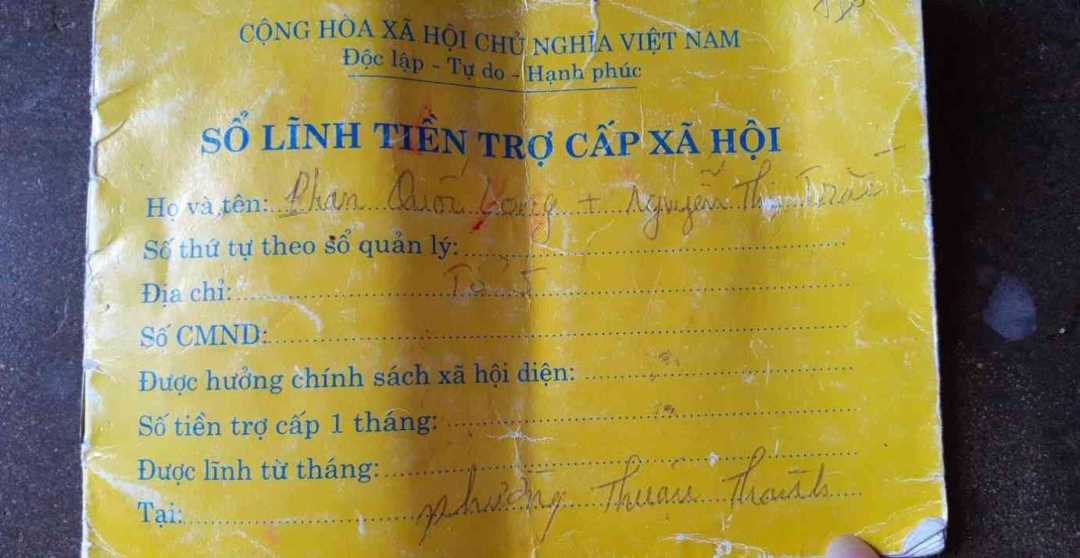 CỘNG HÒA XÃ HỘI CHỦ NGHĨA VIỆT NAM
Độc lập - Tự do - Hạnh phúc
SỔ LĨNH TIỀN TRỢ CẤP XÃ HỘI
Họ và tên: Phan Quốc Long + Nguyễn Thị
Số thứ tự theo sổ quản lý:
Địa chỉ: Tổ 5
Số CMND:
Được hưởng chính sách xã hội diện:
Số tiền trợ cấp 1 tháng:
Được lĩnh từ tháng:
Tại: phường Thuận Thành